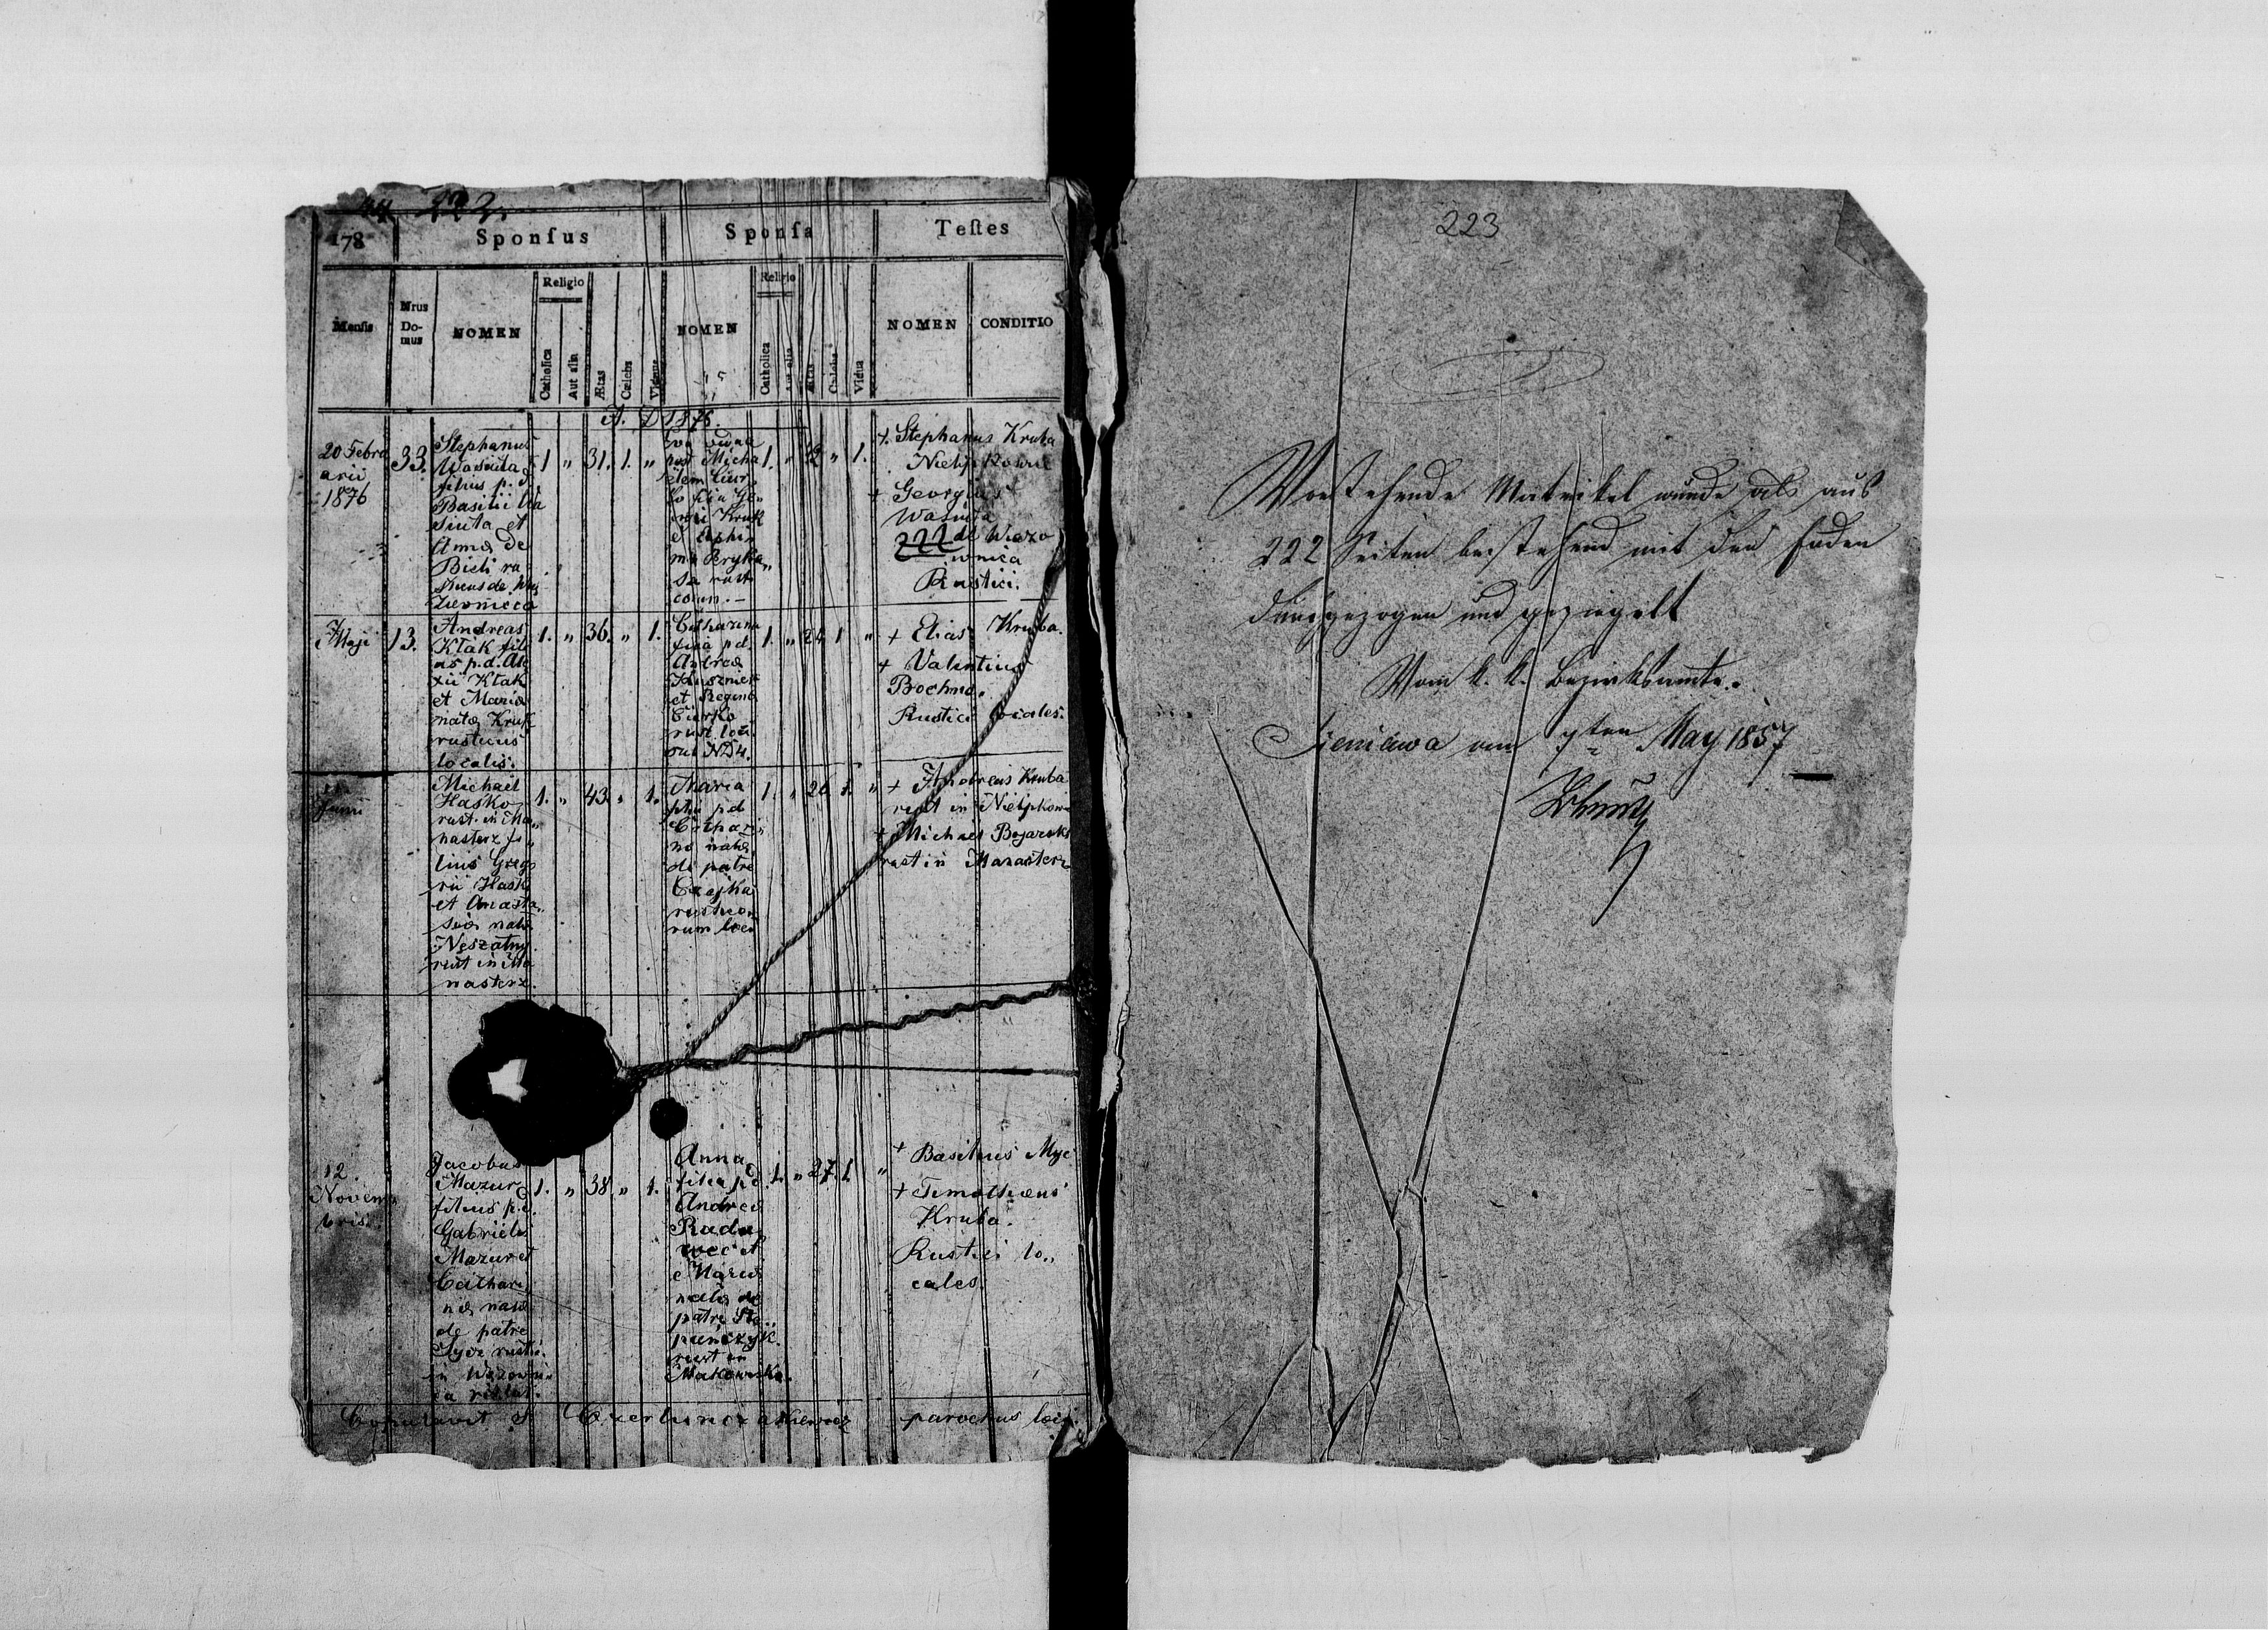 222.
178
Sponſus
Sponſa
Teſtes
Menſis
Nrus
Do-
mus
NOMEN
Religio
Catholica
Aut alia
Ætas
Cælebs
Viduus
NOMEN
Religio
Catholica
Aut alia
Ætas
Cælebs
Vidua
NOMEN
CONDITIO
A. D 1876.
20 Febru
arii
1876
33.
Stephanus
Wasiuta
filius p. d
Basilii Wa
siuta et
Anna de
1 " 31. 1. "
Eva vidua
post Micha
elem
Kruk
rust
1. " " 1.
+ Stephanus Kruba
+ Georgius
Wasiuta
222 de Wiązo
wnica
Rustici.
7 Maji
13.
Andreas
Kłak fili
us p. d. Ale
xii Kłak
et Maria
nata Kruk
rusticus
localis.
1. " 36. " 1.
Catharina
filia p d
Andreæ
et Regina
Ciurko
rust. loci
sub ND 4.
1. " 24 1 "
+ Elias Kruba.
+ Valentius
Bochno.
Rustici locales.
Junii
Michael
Hasko
rust. in Mo„
nasterz fi„
lius Grego
rii Hask
et Anasta„
siæ natæ
rust in Mo
nasterz.
1. " 43. " 1.
Maria
filia p d
natæ
de patre
Czajka
rustico„
rum loci
1. " 26 1. "
+ Andreas Kruba
rust in Nielipkowi
+ Michael Bojarski
rust in Monasterz
12.
Novem
bris.
Jacobus
Mazur
filius p. d.
Gabrielis
Mazur et
Cathari
næ natæ
de patre
1. " 38 " 1.
Anna
filia p d.
Andreæ
Rada
wec et
Mariæ
natæ de
patre Ste„
pieńczyk.
rust in
Makowisko.
1. " 27 1. "
+ Basilius Myc
+ Timotheus
Kruba.
Rustici lo„
cales.
Copulavit parochus loci.
223
Vorstehende Matrikel wurde als aus
222 Seiten bestehend mit den Faden
durchgezogen und gesiegelt
Vom k. k. Bezirksamte.
Sieniawa am 7ten May 1857